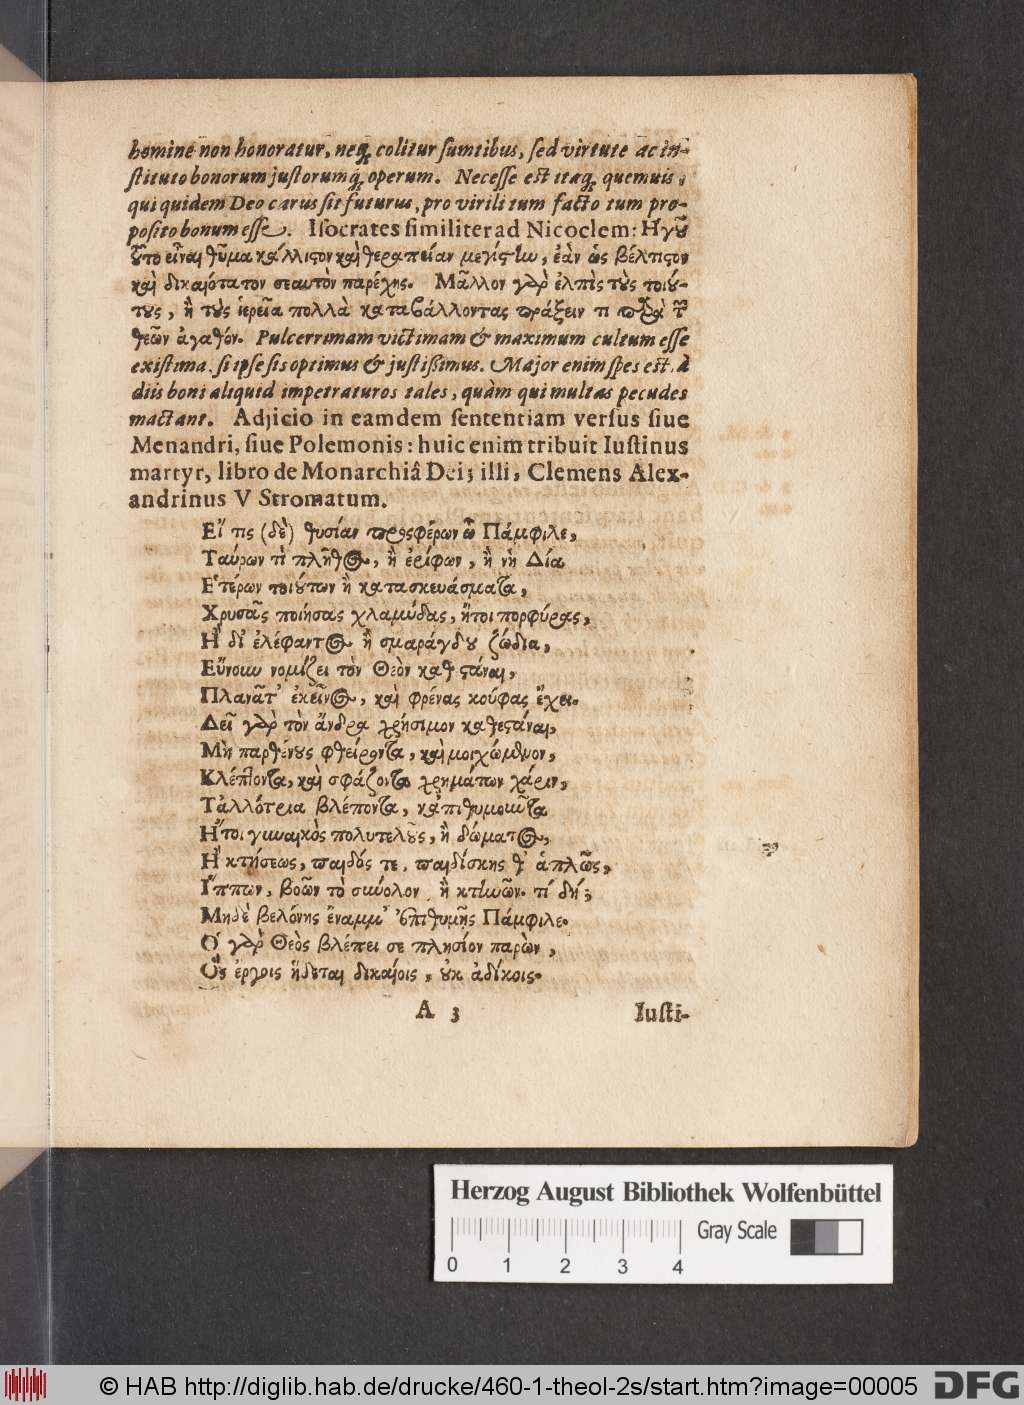 homine non honoratur, neq; colitur sumtibus, sed virtute ac in-
stituto bonorum justorumq; operum. Necesse est itaq; quemuis,
qui quidem Deo carus sit futurus, pro virili tum facto tum pro-
posito bonum esse. Isocrates similiter ad Nicoclem: Ἡγοῦ
τοῦτο εἶναι θῦμα κάλλιστον καὶ θεραπείαν μεγίστην, ἐὰν ὡς βέλτιστον
καὶ δικαιότατον σεαυτὸν παρέχῃς. Μᾶλλον γὰρ ἐλπὶς τοὺς τοιού-
τους, ἢ τοὺς ἱερεῖα πολλὰ καταβάλλοντας πράξειν τι παρὰ τῶν
θεῶν ἀγαθόν. Pulcerrimam victimam & maximum cultum esse
existima, si ipse sis optimus & justißimus. Major enim spes est, à
diis boni aliquid impetraturos tales, quàm qui multas pecudes
mactant. Adjicio in eamdem sententiam versus siue
Menandri, siue Polemonis: huic enim tribuit Iustinus
martyr, libro de Monarchiâ Dei; illi, Clemens Alex-
andrinus V Stromatum.
Εἴ τις (δὲ) θυσίαν προσφέρων ὦ Πάμφιλε,
Ταύρων τὶ πλῆθος, ἢ ἐρίφων, ἢ νὴ Δία
Ἑτέρων τοιούτων ἢ κατασκευάσματα,
Χρυσᾶς ποιήσας χλαμύδας, ἤτοι πορφύρας,
Ἢ δι' ἐλέφαντος ἢ σμαράγδου ζώδια,
Εὔνουν νομίζει τὸν Θεὸν καθεστάναι,
Πλανᾶτ' ἐκεῖνος, καὶ φρένας κούφας ἔχει.
Δεῖ γὰρ τὸν ἄνδρα χρήσιμον καθεστάναι,
Μὴ παρθένους φθείροντα, καὶ μοιχώμενον,
Κλέπτοντα, καὶ σφάζοντα χρημάτων χάριν,
Τἀλλότρια βλέποντα, κἀπιθυμοῦντα
Ἤτοι γυναικὸς πολυτελοῦς, ἢ δώματος,
Ἢ κτήσεως, παιδός τε, παιδίσκης θ' ἁπλῶς,
Ἵππων, βοῶν τὸ σύνολον, ἢ κτηνῶν. τί δή;
Μηδὲ βελόνης ἔναμμ' ἐπιθυμῇς Πάμφιλε.
Ὁ γὰρ Θεὸς βλέπει σε πλησίον παρὼν,
Ὃς ἔργοις ἥδεται δικαίοις, οὐκ ἀδίκοις.
A 3 Iusti-
Herzog August Bibliothek Wolfenbüttel
Gray Scale
0 1 2 3 4
© HAB http://diglib.hab.de/drucke/460-1-theol-2s/start.htm?image=00005
DFG